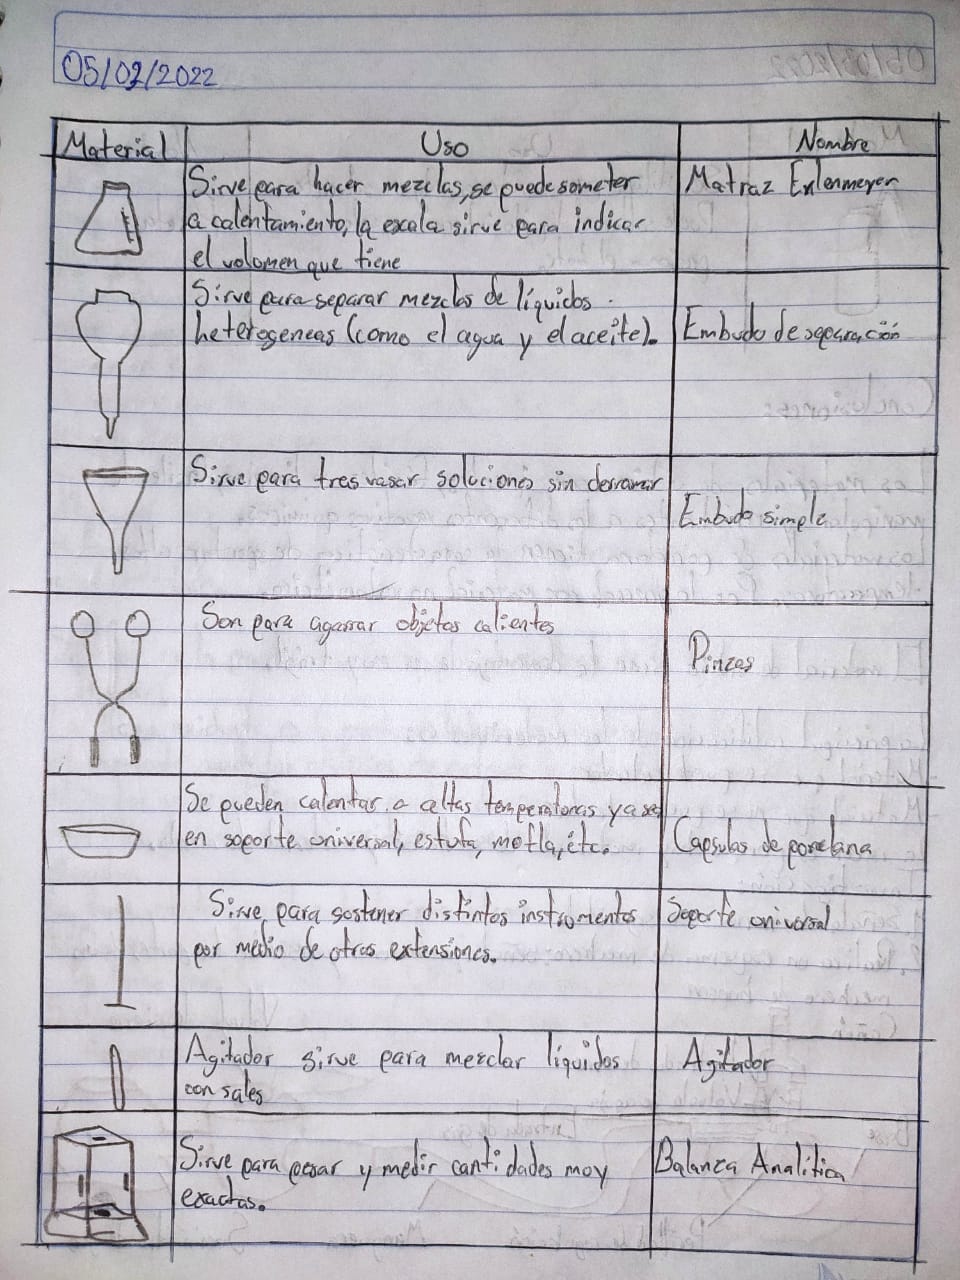 05/02/2022
Material Uso Nombre
Sirve para hacer mezclas, se puede someter
a calentamiento, la escala sirve para indicar
el volomen que tiene
Matraz Erlenmeyer
Sirve para separar mezclas de líquidos
heterogeneas (como el agua y el aceite).
Embudo de separación
Sirve para tres vasar soluciones sin derramar
Embudo simple
Son para agarrar objetos calientes
Pinzas
Se pueden calentar a altas temperatoras ya sea
en soporte oniversal, estufa, mofla, étc.
Capsulas de porcelana
Sirve para sostener distintos instromentos
por medio de otras extensiones.
Soporte oniversal
Agitador sirve para mezclar líquidos
con sales
Agitador
Sirve para pesar y medir cantidades moy
exactas.
Balanza Analítica